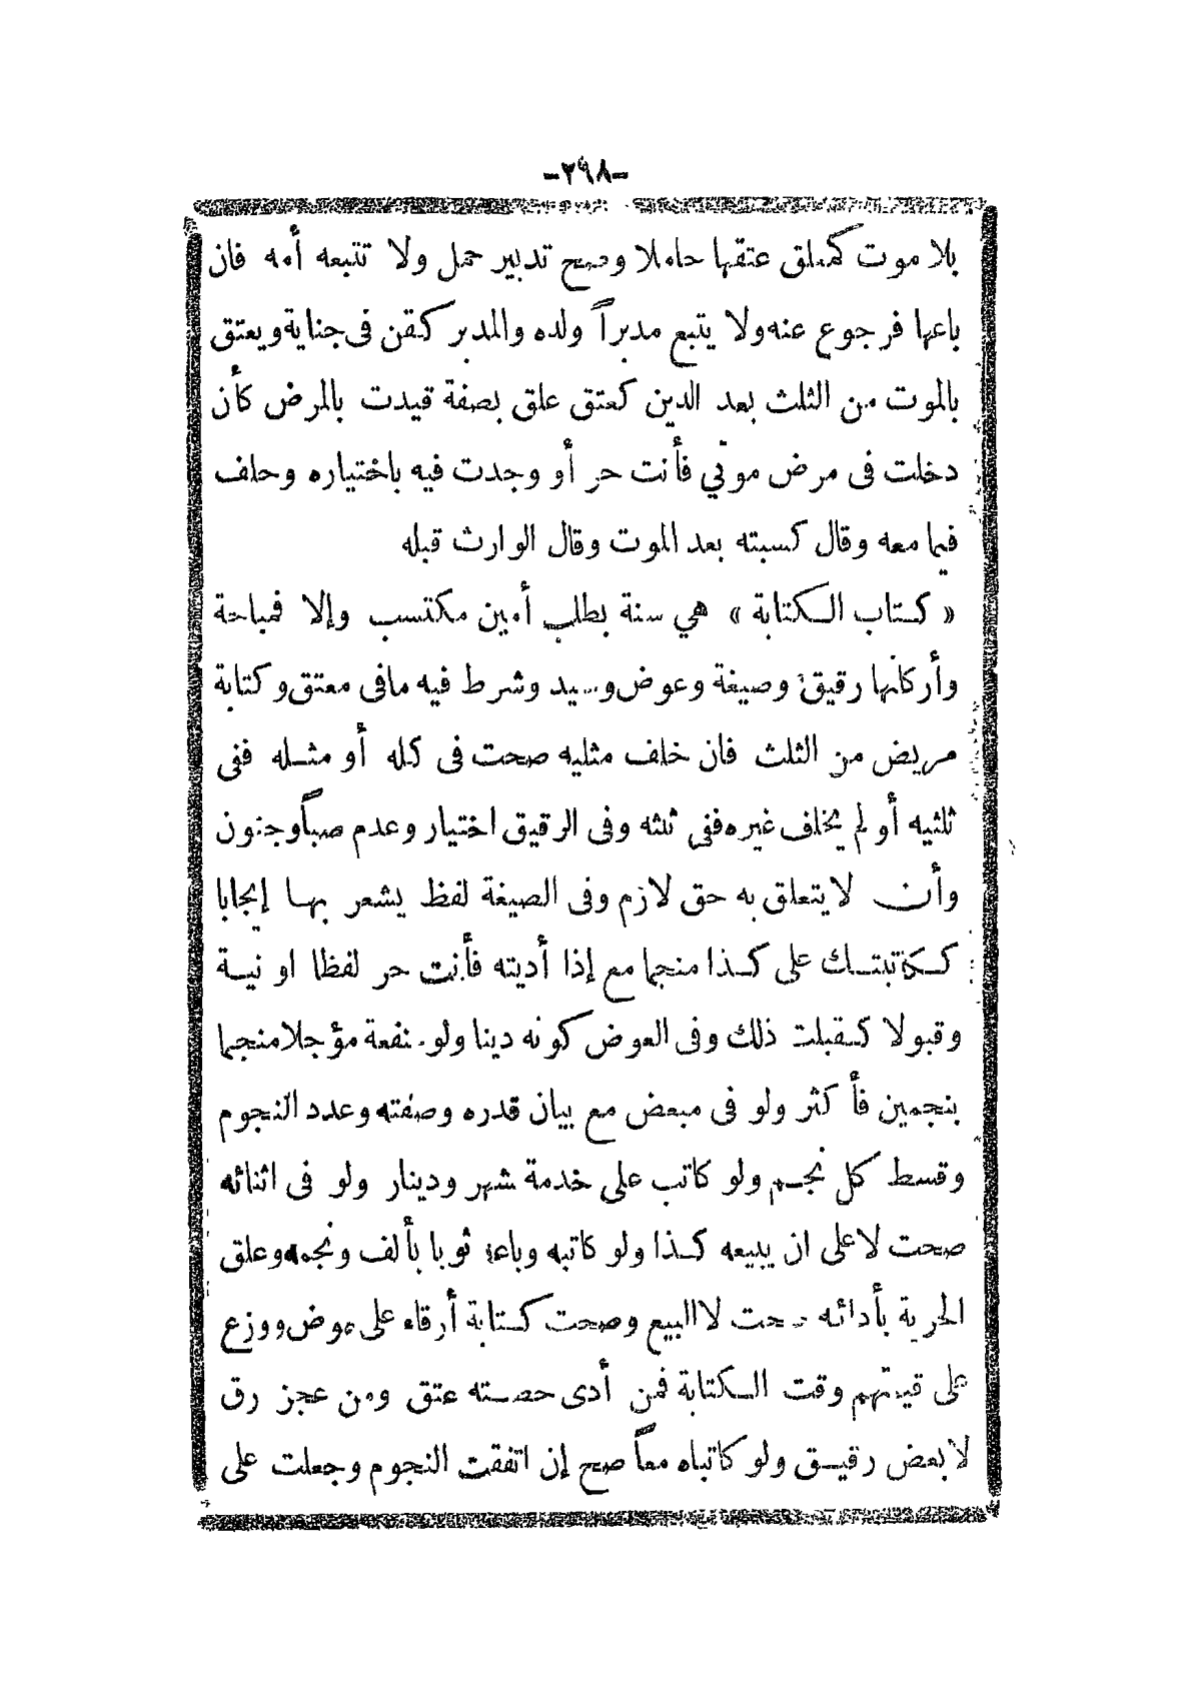 -٢٩٨-
بلا موت كمعلق عتقها حاملا وصح تدبير حمل ولا تتبعه أمه فان
باعها فرجوع عنه ولا يتبع مدبراً ولده والمدبر كقن فى جناية ويعتق
بالموت من الثلث بعد الدين كعتق علق بصفة قيدت بالمرض كأن
دخلت فى مرض موتي فأنت حر أو وجدت فيه باختياره وحلف
فيما معه وقال كسبته بعد الموت وقال الوارث قبله
« كتاب الكتابة » هي سنة بطلب أمين مكتسب وإلا فمباحة
وأركانها رقيق وصيغة وعوض وسيد وشرط فيه مافى معتق وكتابة
مريض من الثلث فان خلف مثليه صحت فى كله أو مثله ففى
ثلثيه أو لم يخلف غيره ففى ثلثه وفى الرقيق اختيار وعدم صباً وجنون
وأن لايتعلق به حق لازم وفى الصيغة لفظ يشعر بها إيجابا
ككاتبتك على كذا منجما مع إذا أديته فأنت حر لفظا او نية
وقبولا كقبلت ذلك وفى العوض كونه دينا ولو منفعة مؤجلا منجما
بنجمين فأكثر ولو فى مبعض مع بيان قدره وصفته وعدد النجوم
وقسط كل نجم ولو كاتب على خدمة شهر ودينار ولو فى اثنائه
صحت لاعلى ان يبيعه كذا ولو كاتبه وباعه ثوبا بألف ونجمه وعلق
الحرية بأدائه صحت لا البيع وصحت كتابة أرقاء على عوض ووزع
على قيمتهم وقت الكتابة فمن أدى حصته عتق ومن عجز رق
لا بعض رقيق ولو كاتباه معاً صح إن اتفقت النجوم وجعلت على